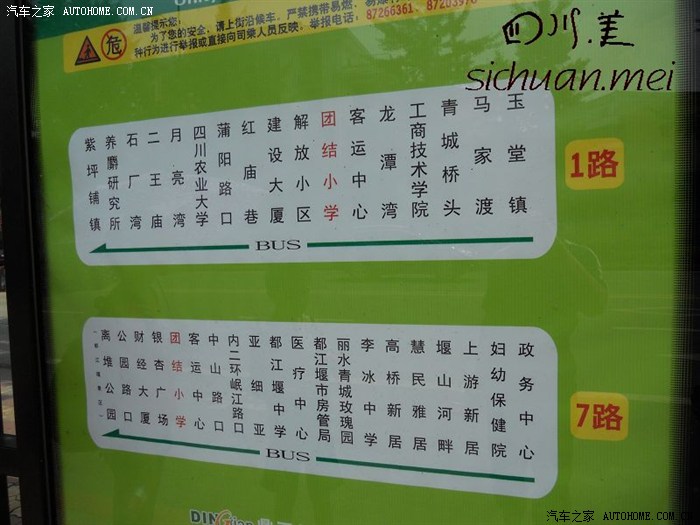 汽车之家 AUTOHOME.COM.CN
温馨提示您:
为了您的安全,请上街沿候车,严禁携带易燃、
种行为进行举报或直接向司乘人员反映。举报电话:
危
四川.美
sichuan.mei
紫坪铺镇
养麝研究所
石厂湾
二王庙
月亮湾
四川农业大学
蒲阳路口
红庙巷
建设大厦
解放小区
团结小学
客运中心
龙潭湾
工商技术学院
青城桥头
马家渡
玉堂镇
BUS
1路
离堆公园
公园路口
财经大厦
银杏广场
团结小学
客运中心
中山路口
内二环岷江路口
亚细亚
都江堰中学
医疗中心
都江堰市房管局
丽水青城玫瑰园
李冰中学
高桥新居
慧民雅居
堰山河畔
上游新居
妇幼保健院
政务中心
BUS
7路
汽车之家 AUTOHOME.COM.CN